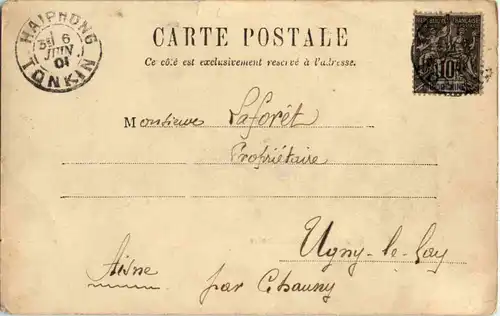 HAIPHONG
3e 6
JUIN
01
TONKIN
CARTE POSTALE
Ce côté est exclusivement reservé à l'adresse.
Monsieur Laforêt
Propriétaire
Ugny-le-Gay
Aisne par Chauny
RÉPUBLIQUE FRANÇAISE
10